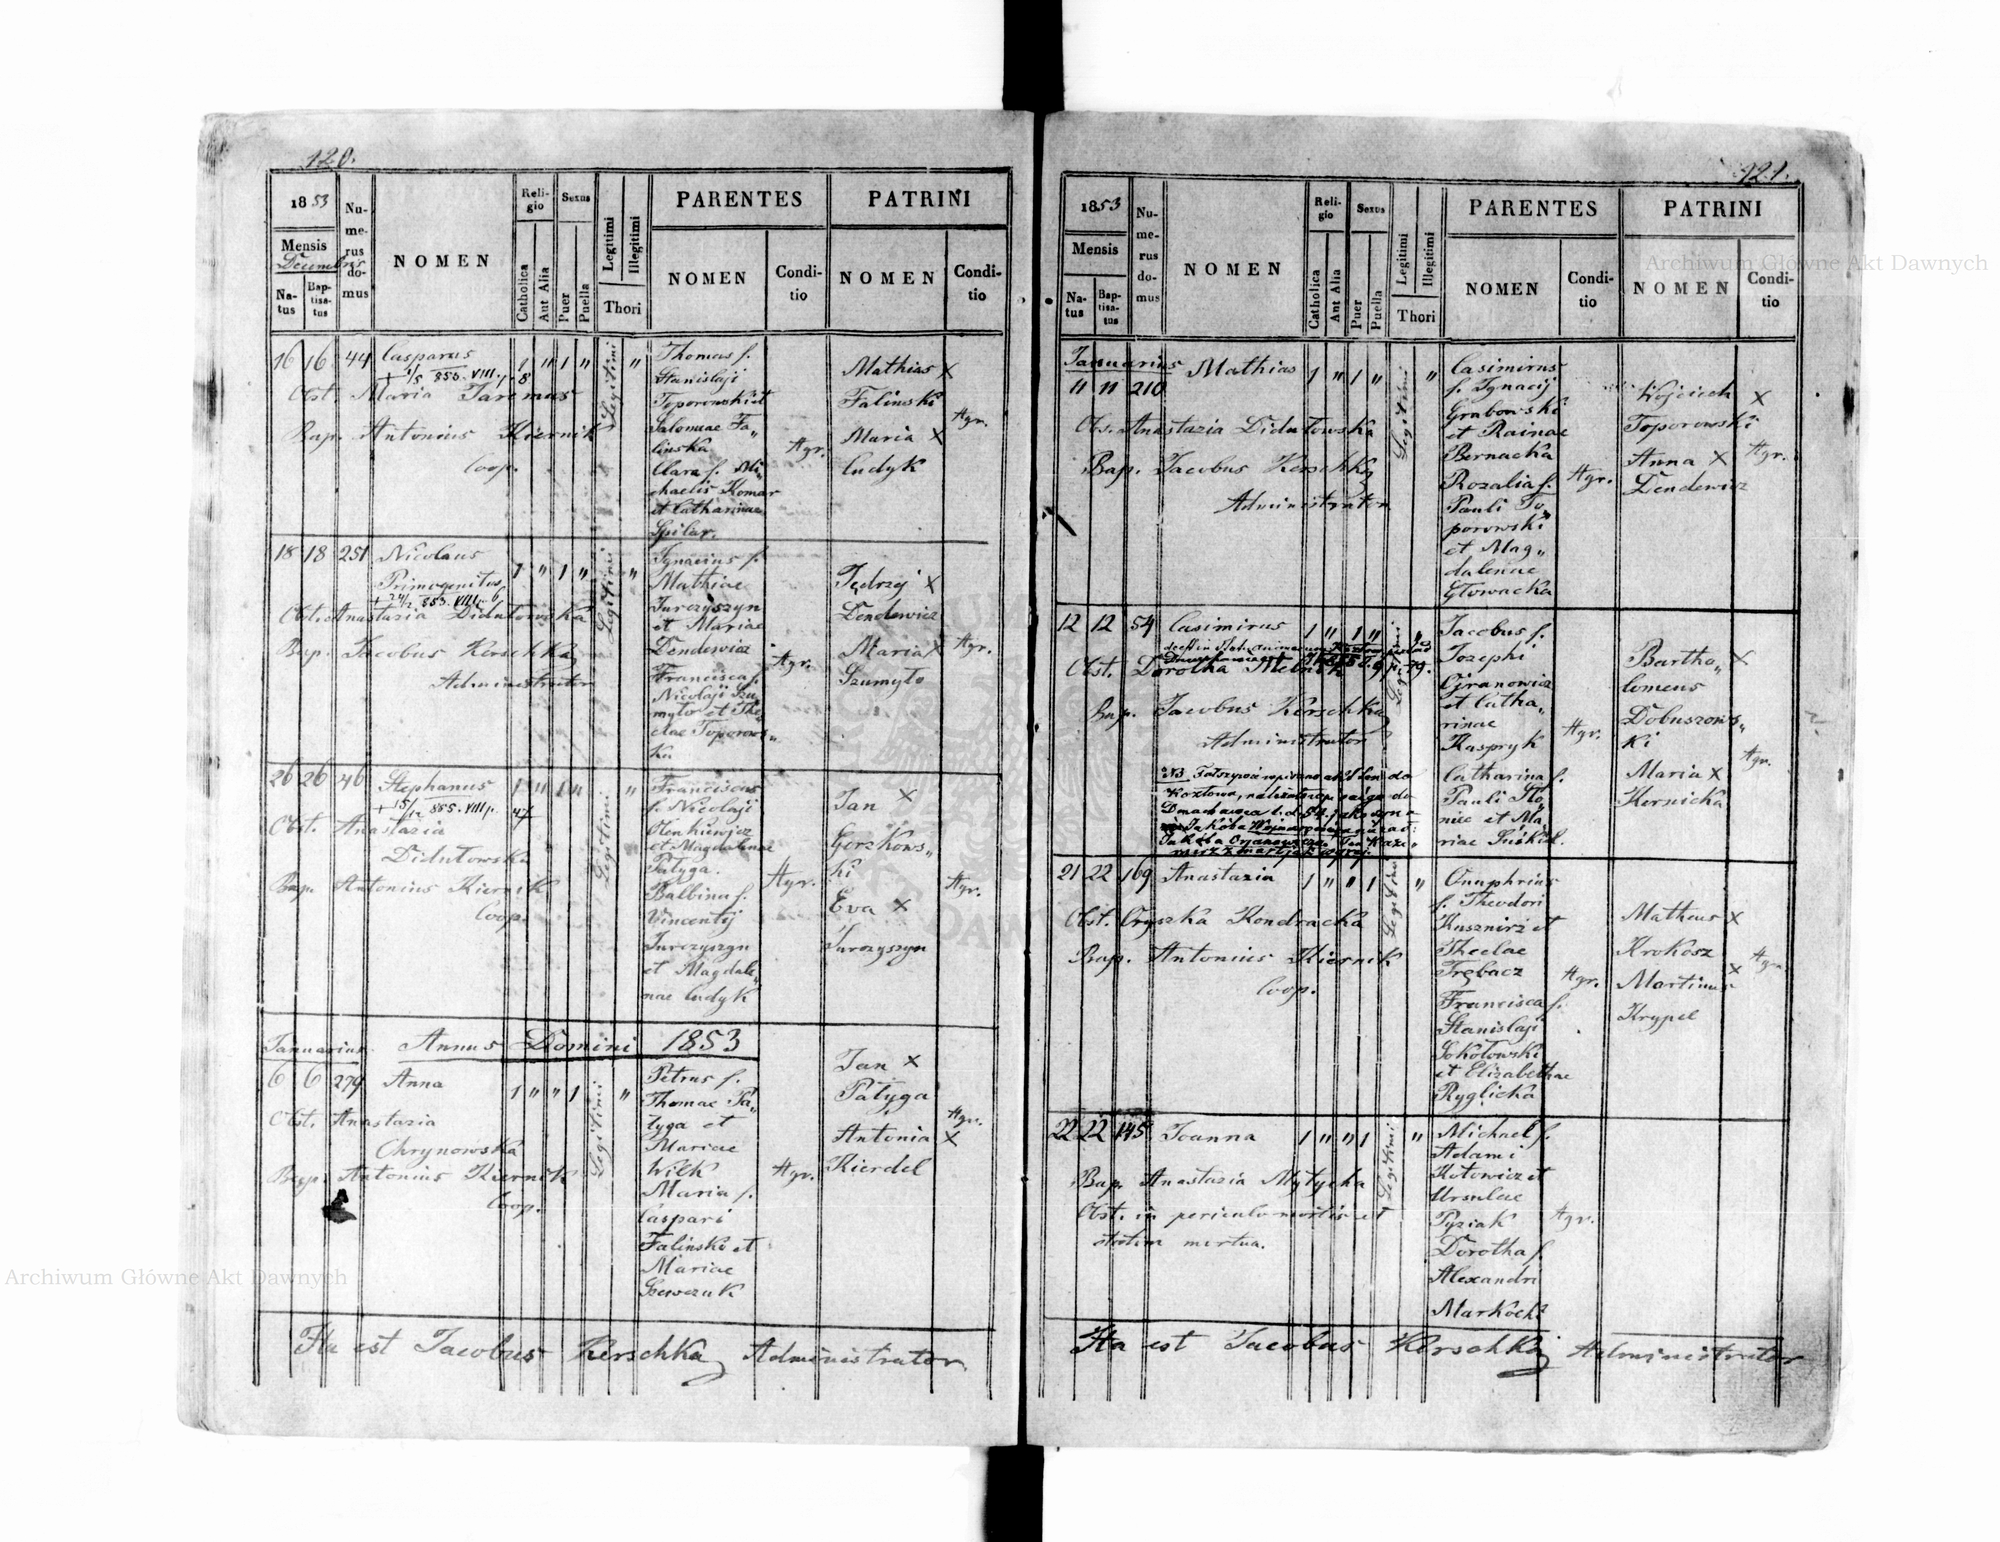 120.
1853
Mensis
Decembris
Natus
Baptisatus
Numerus domus
NOMEN
Religio
Catholica
Aut Alia
Sexus
Puer
Puella
Legitimi
Illegitimi
Thori
PARENTES
NOMEN
Conditio
PATRINI
NOMEN
Conditio
16 16 44 Casparus 1 " 1 " Legitimi "
Obst. Maria Jaremus
Bap. Antonius Kiernik
Coop.
Thomas f.
Stanislaji
Toporowski et
Salomae Fa„
linska
Clara f. Mi„
chaelis Komar
et Catharinae
Spilar.
Agr.
Mathias X
Falinski
Maria X
Ludyk
Agr.
18 18 251 Nicolaus 1 " 1 " Legitimi "
Primogenitus
Obst. Anastazia Didutowska
Bap. Jacobus Kerschka
Administrator
Ignacius f.
Mathiae
Jurczyszyn
et Mariae
Dendewicz
Francisca f.
Nicolaji Szu„
myto et The„
clae Toporows„
ka
Agr.
Jędrzej X
Dendewicz
Maria X
Szumyto
Agr.
26 26 46 Stephanus 1 " 1 " Legitimi "
Obst. Anastazia
Didutowska
Bap. Antonius Kiernik
Coop.
Franciscus
f. Nicolaji
Henkiewicz
et Magdalenae
Patyga.
Balbina f.
Vincentij
Jurczyszyn
et Magdale„
nae Ludyk
Agr.
Jan X
Gorzkows„
ki
Eva X
Jurczyszyn
Agr.
Januarius Annus Domini 1853
6 6 279 Anna 1 " " 1 Legitimi "
Obst. Anastazia
Chrynowska
Bap. Antonius Kiernik
Coop.
Petrus f.
Thomae Pa„
tyga et
Mariae
Wilk
Maria f.
Caspari
Falinski et
Mariae
Szewczuk
Agr.
Jan X
Patyga
Antonia X
Kierdel
Agr.
Ita est Jacobus Kerschka Administrator
121.
1853
Mensis
Natus
Baptisatus
Numerus domus
NOMEN
Religio
Catholica
Aut Alia
Sexus
Puer
Puella
Legitimi
Illegitimi
Thori
PARENTES
NOMEN
Conditio
PATRINI
NOMEN
Conditio
Januarius
11 11 210 Mathias 1 " 1 " Legitimi "
Obs. Anastazia Didutowska
Bap. Jacobus Kerschka
Administrator
Casimirus
f. Ignacij
Grabowski
et Rainae
Bernacka
Rozalia f.
Pauli To„
porowski
et Mag„
dalenae
Głowacka
Agr.
Wojciech X
Toporowski
Anna X
Dendewicz
Agr.
12 12 54 Casimirus 1 " 1 " Legitimi "
Obst. Dorotha Melnik
Bap. Jacobus Kerschka
Administrator
Jacobus f.
Jozephi
Ojranowicz
et Catha„
rinae
Kaspryk
Catharina f.
Pauli
et Ma„
riae
Agr.
Bartho„ X
lomeus
Dobuszows„
ki
Maria X
Kernicka
Agr.
21 22 169 Anastazia 1 " " 1 Legitimi "
Obst. Oryszka Kondracka
Bap. Antonius Kiernik
Coop.
Onuphrius
f. Theodori
Kusznirz et
Theclae
Trębacz
Francisca f.
Stanislaji
Sokołowski
et Elizabethae
Ryglicka
Agr.
Matheus X
Krokosz
Martinus X
Krypel
Agr.
22 22 145 Joanna 1 " " 1 Legitimi "
Bap. Anastazia Mytycka
Obst. in periculo mortis et
statim mortua.
Michael f.
Adami
Kotowicz et
Ursulae
Pyziak
Dorotha f.
Alexandri
Markocki
Agr.
Ita est Jacobus Kerschka Administrator
Archiwum Główne Akt Dawnych
Archiwum Główne Akt Dawnych